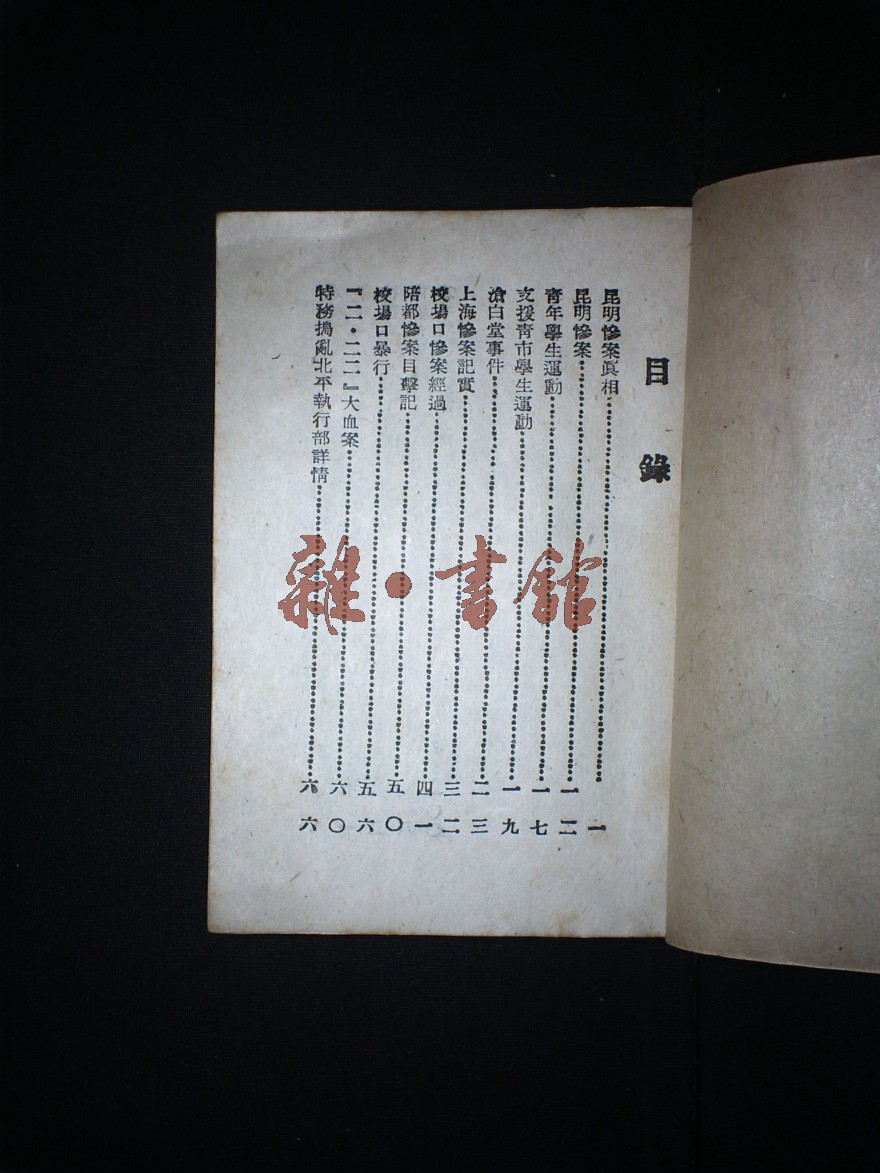 目錄
昆明慘案眞相………一
昆明慘案………一二
青年學生運動………一七
支援青市學生運動………一九
滄白堂事件………二三
上海慘案記實………三二
校場口慘案經過………四一
陪都慘案目擊記………五〇
校場口暴行………五六
『二·二二』大血案………六〇
特務搗亂北平執行部詳情………六六
雜·書館